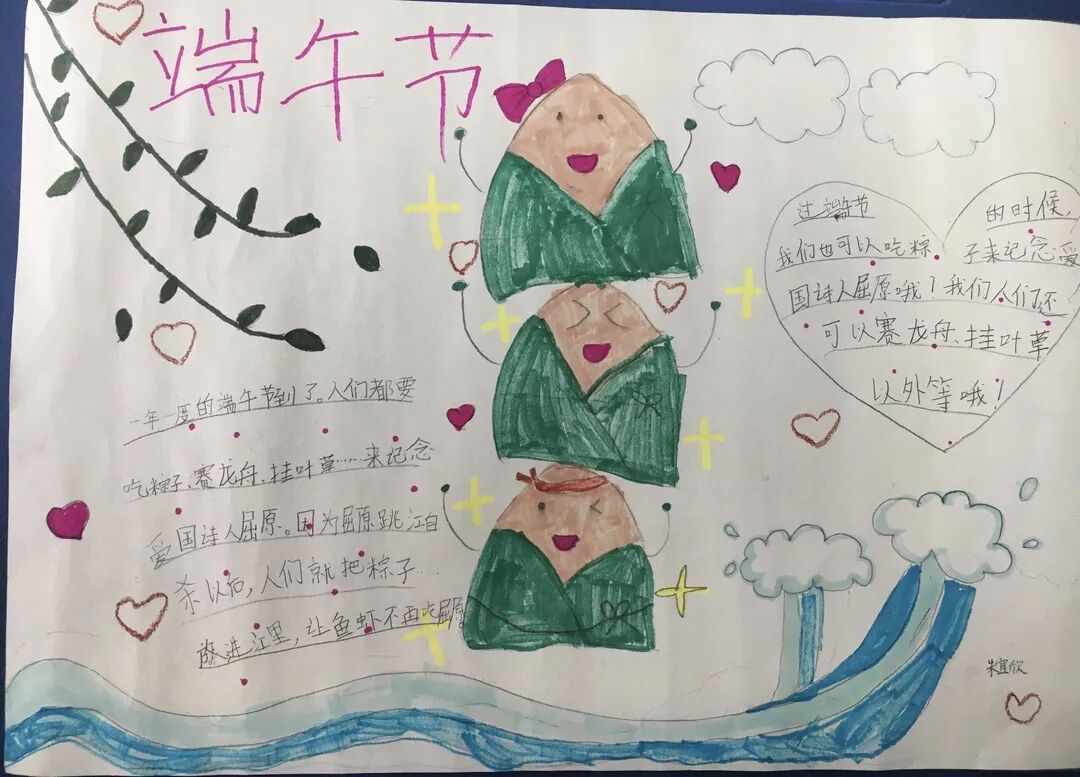 端午节
一年一度的端午节到了。人们都要
吃粽子、赛龙舟、挂叶草……来记念
爱国诗人屈原。因为屈原跳江自
杀以后,人们就把粽子
放进江里,让鱼虾不再吃屈原
过端午节的时候,
我们也可以吃粽子来记念爱
国诗人屈原哦!我们人们还
可以赛龙舟、挂叶草
以外等哦!
朱宜欣